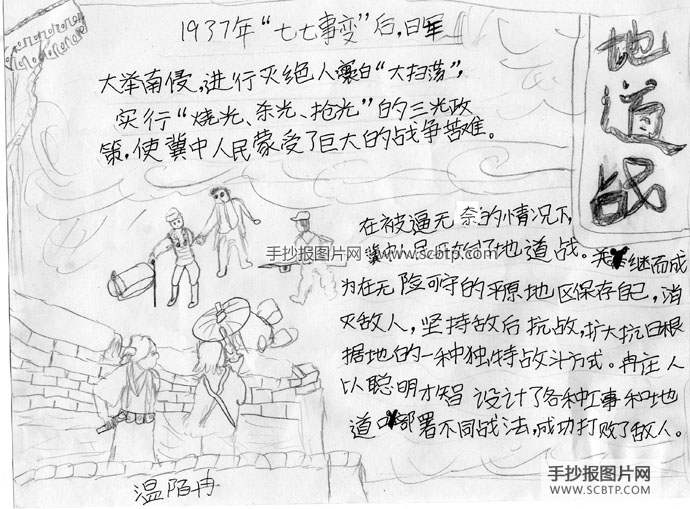 1937年“七七事变”后，日军
大举南侵，进行灭绝人寰的“大扫荡”，
实行“烧光、杀光、抢光”的三光政
策，使冀中人民蒙受了巨大的战争苦难。
地道战
在被逼无奈的情况下，
冀中人民开始了地道战。
手抄报图片网 www.scbtp.com
继而成
为在无险可守的平原地区保存自己，消
灭敌人，坚持敌后抗战，扩大抗日根
据地的一种独特战斗方式。冉庄人
以聪明才智 设计了各种工事和地
道口部署不同战法，成功打败了敌人。
温陌冉
手抄报图片网
WWW.SCBTP.COM